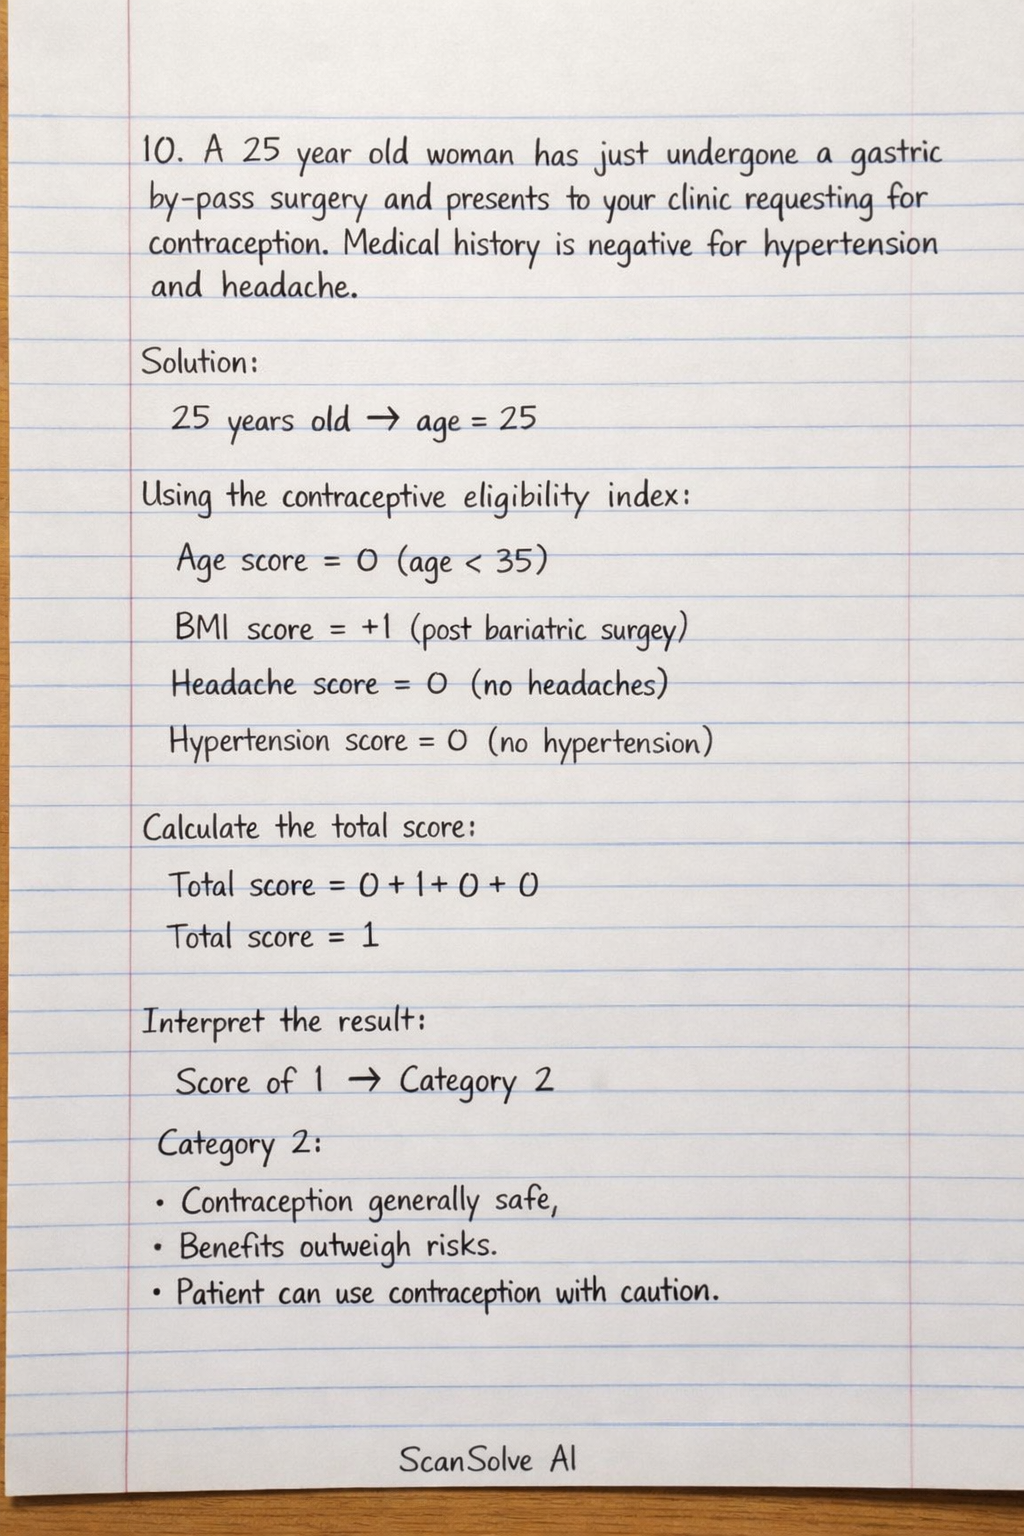 10. A 25 year old woman has just undergone a gastric
by-pass surgery and presents to your clinic requesting for
contraception. Medical history is negative for hypertension
and headache.
Solution:
25 years old → age = 25
Using the contraceptive eligibility index:
Age score = 0 (age < 35)
BMI score = +1 (post bariatric surgey)
Headache score = 0 (no headaches)
Hypertension score = 0 (no hypertension)
Calculate the total score:
Total score = 0 + 1 + 0 + 0
Total score = 1
Interpret the result:
Score of 1 → Category 2
Category 2:
• Contraception generally safe,
• Benefits outweigh risks.
• Patient can use contraception with caution.
ScanSolve AI